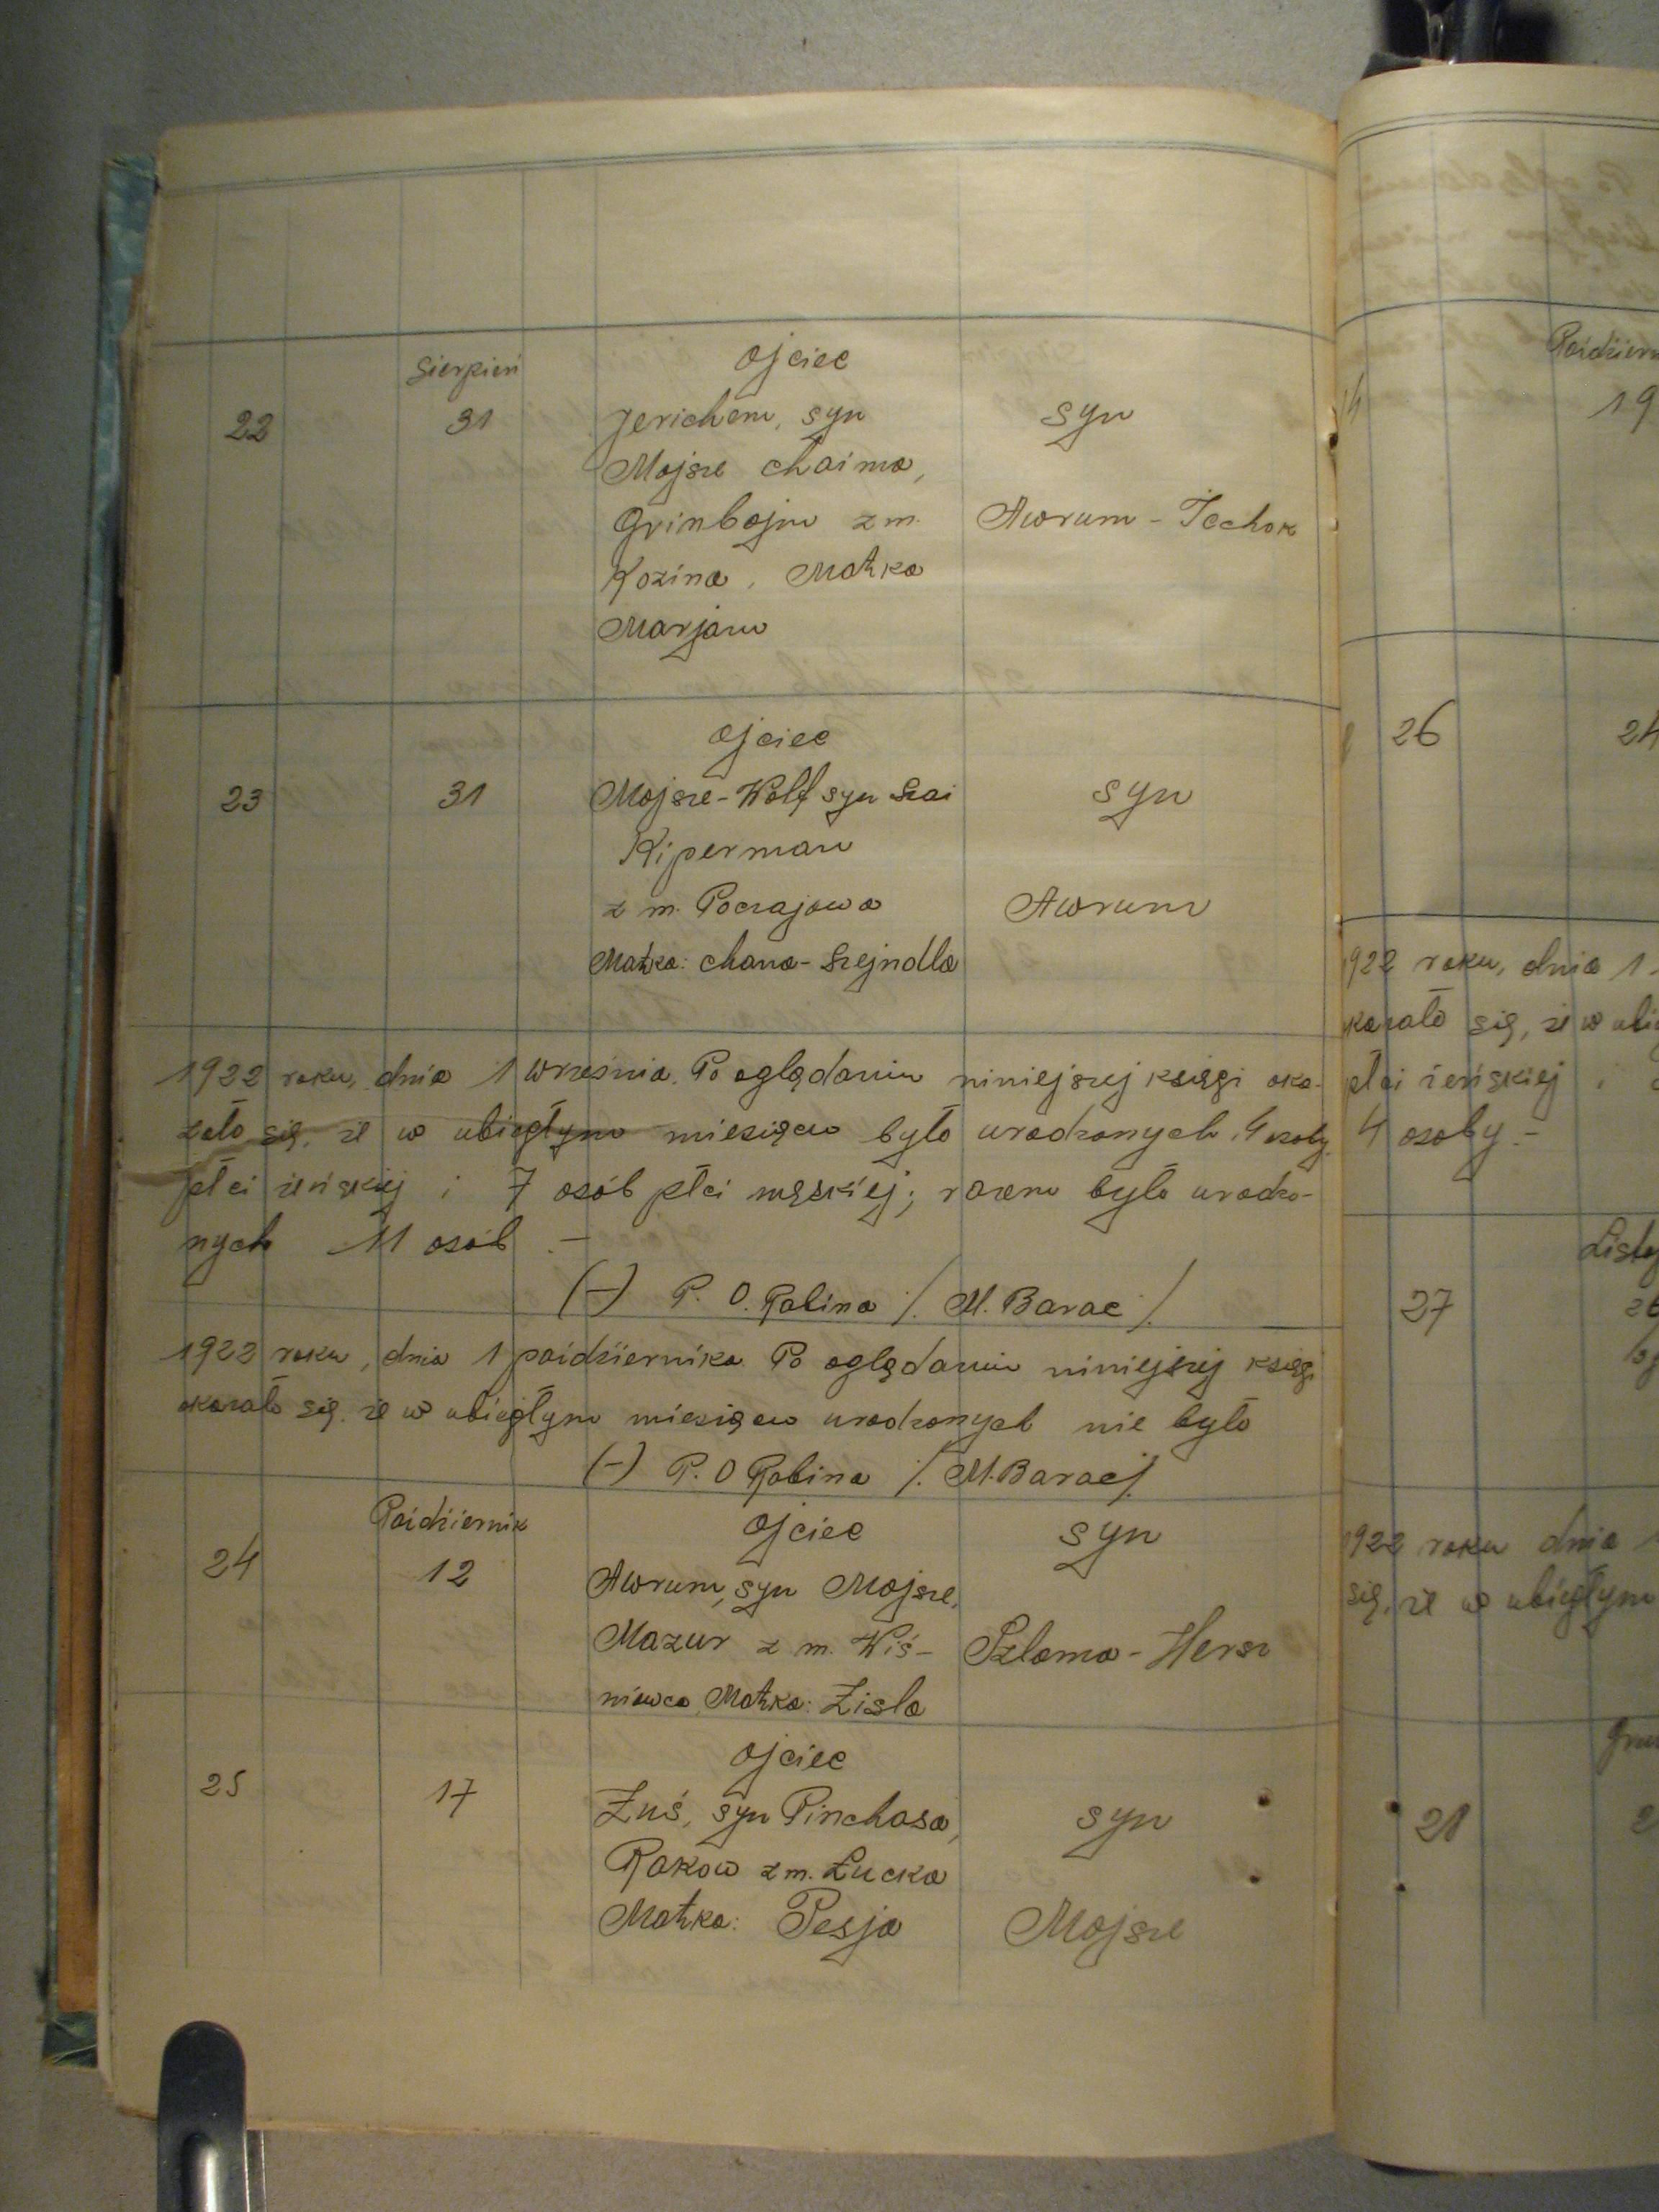 Sierpień
Ojciec
22
31
Jerichem, syn
syn
Mojsze Chaima,
Grinbojm z m.
Awrum - Icchok
Kozina, Matka
Marjam
Ojciec
23
31
Mojsze-Wolf syn Szai
syn
Kiperman
z m. Poczajowa
Awrum
Matka: Chana-Szejndla
1922 roku, dnia 1 września. Po oglądaniu niniejszej księgi oka-
zało się, że w ubiegłym miesiącu było urodzonych 4 osoby
płci żeńskiej i 7 osób płci męskiej; razem było urodzo-
nych 11 osób .-
(-) P. O. Rabina /. M. Barac /.
1922 roku, dnia 1 paidziernika. Po oglądaniu niniejszej księgi
okazało się, że w ubiegłym miesiącu urodzonych nie było
(-) P. O Rabina /. M. Barac /.
Paidziernik
Ojciec
syn
24
12
Awrum, syn Mojsze,
Mazur z m. Wiś-
Szloma - Hersz
niowca, Matka: Zisla
Ojciec
25
17
Zuś, syn Pinchasa,
syn
Rakow z m. Łucka
Matka: Pesja
Mojsze
Paidziern
19
26
24
1922 roku, dnia 1
kazało się, że w ubie
płci żeńskiej i
4 osoby .-
Listo
27
1922 roku dnia 1
się, że w ubiegłym
Gru
28
2